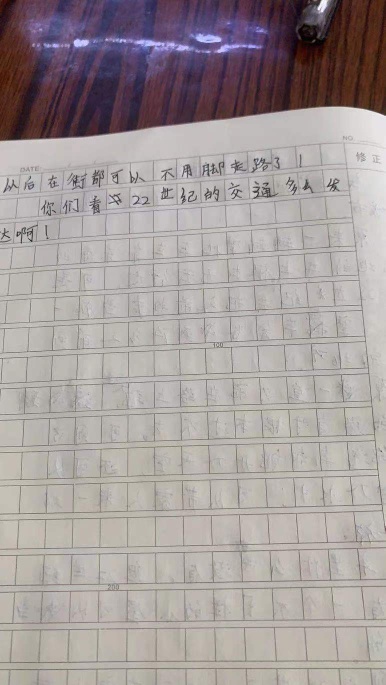 NO.
DATE
修正
以后在街都可以不用脚走路了！
你们看22世纪的交通多么发
达啊！
100
200